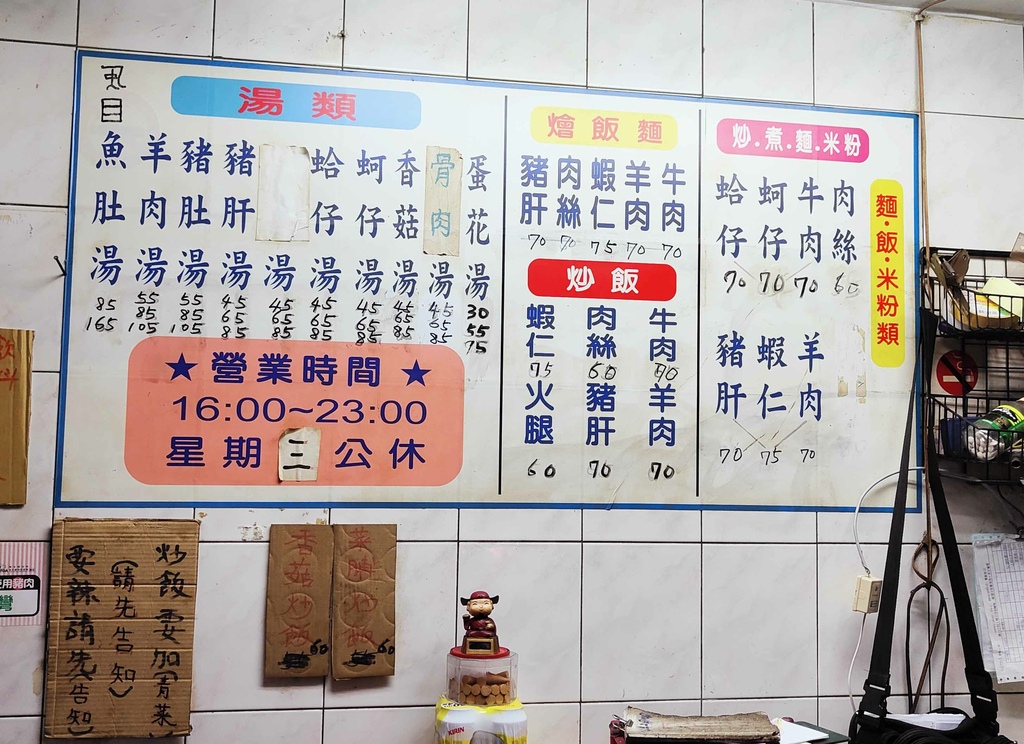 湯類
虱目魚肚湯 85 165
羊肉湯 55 85 105
豬肚湯 55 85 105
豬肝湯 45 65 85
湯 45 65 85
蛤仔湯 45 65 85
蚵仔湯 45 65 85
香菇湯 45 65 85
骨肉湯 45 65 85
蛋花湯 30 55 75
★營業時間★
16:00~23:00
星期三公休
燴飯麵
豬肝 70
肉絲 70
蝦仁 75
羊肉 70
牛肉 70
炒飯
蝦仁 75
肉絲 60
牛肉 70
火腿 60
豬肝 70
羊肉 70
炒.煮.麵.米粉
麵·飯·米粉類
蛤仔 70
蚵仔 70
牛肉 70
肉絲 60
豬肝 70
蝦仁 75
羊肉 70
炒飯要加(青菜)
(請先告知)
要辣請先(告知)
香菇炒飯 60
菜脯炒飯 60
使用豬肉
灣
KIRIN